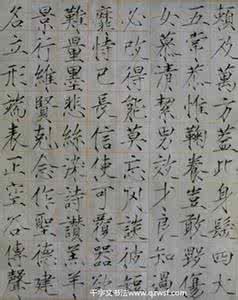 賴及萬方蓋此身髮四大
五常恭惟鞠養豈敢毀傷
女慕清絜男效才良知過
必改得能莫忘罔談彼短
靡恃己長信使可覆器欲
難量墨悲絲染詩讚羔羊
景行維賢剋念作聖德建
名立形端表正空谷傳聲
千字文书法网 www.qzwsf.com